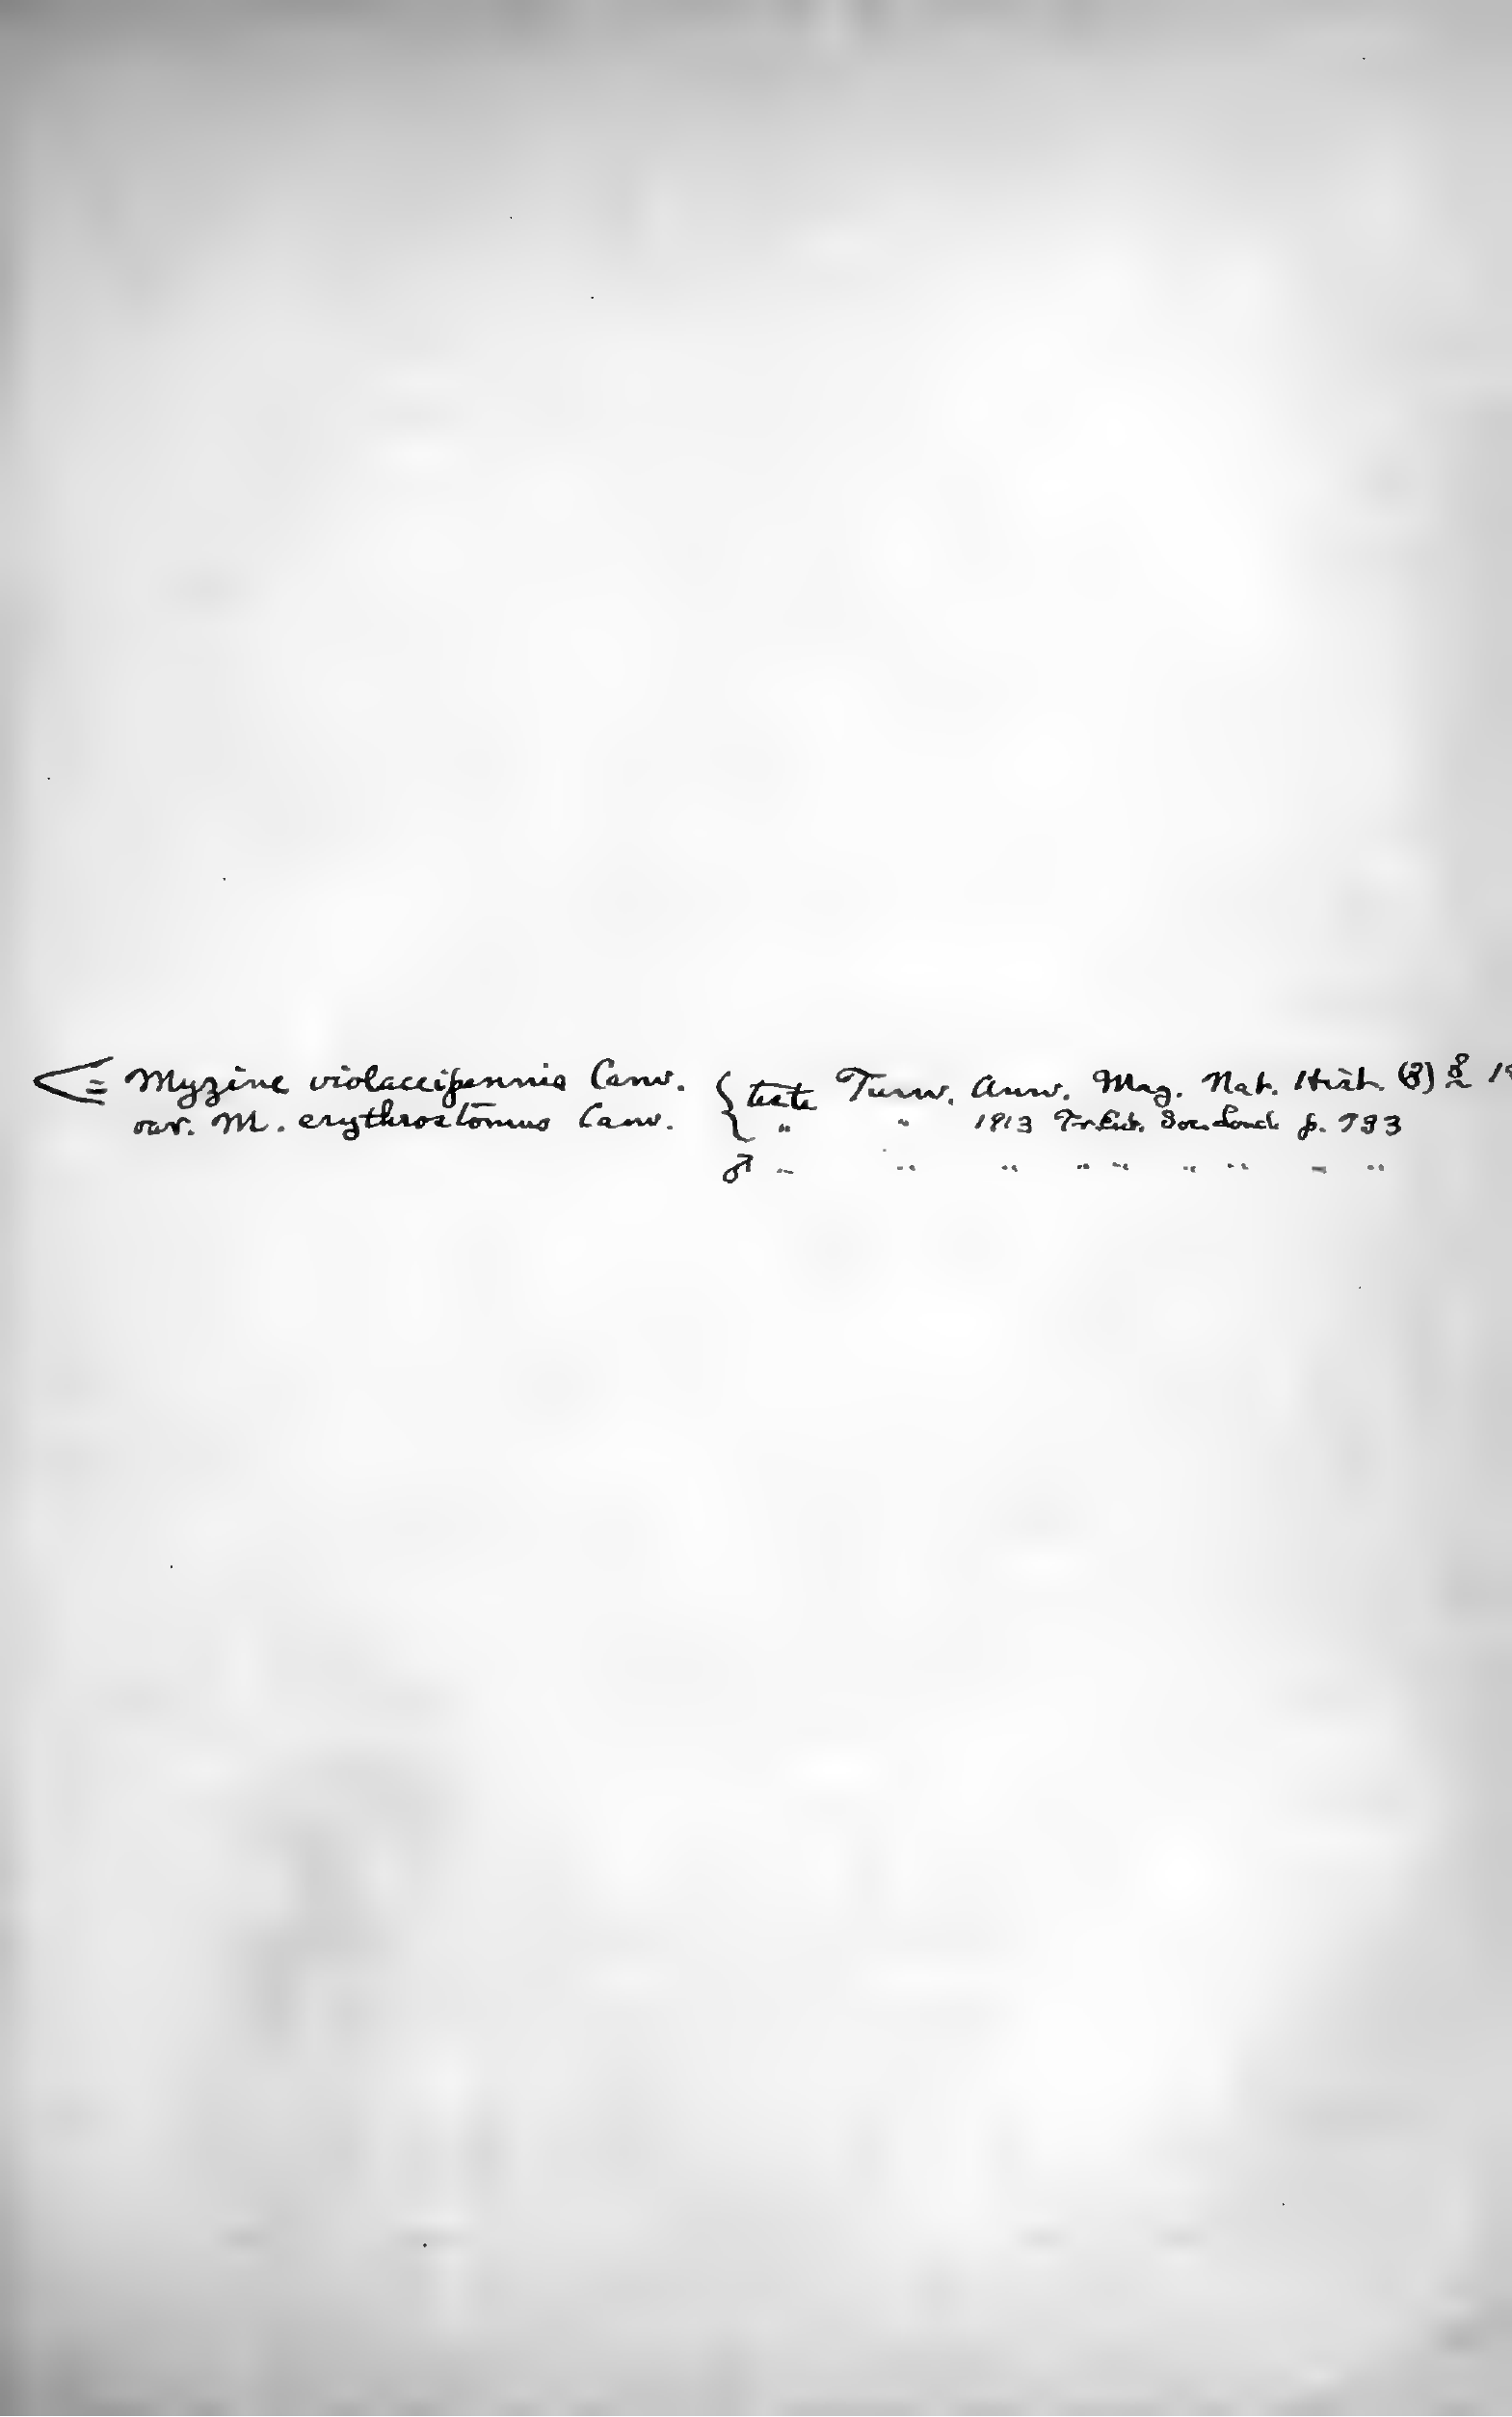 = Myzine violaceipennis Cam. { teste Turn. Ann. Mag. Nat. Hist. (8) 8 19
var. M. erythrostomus Cam. " " 1913 Tr. Ent. Soc. Lond. p. 733
♂ " " " " " " " " "